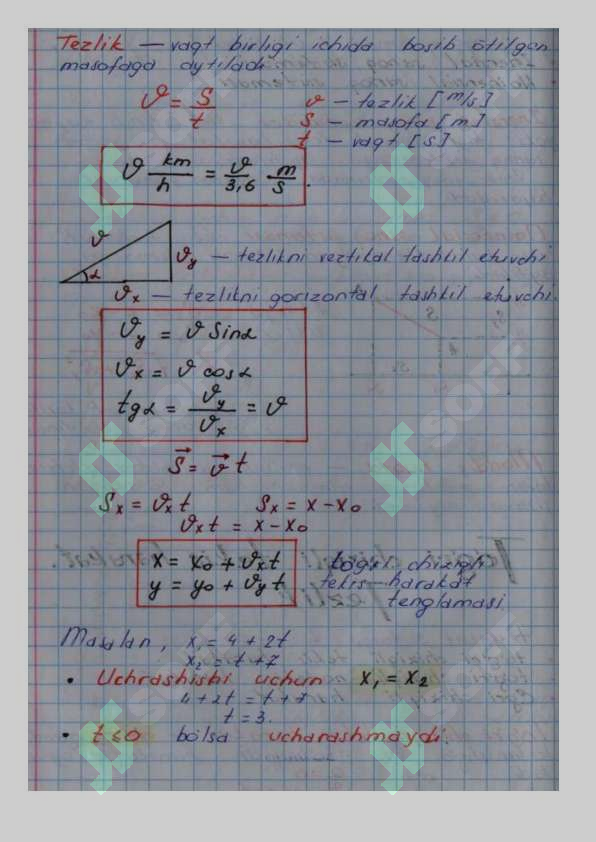 Tezlik — vaqt birligi ichida bosib ötilgan
masofaga aytiladi.
ϑ = S/t
ϑ — tezlik [m/s]
S — masofa [m]
t — vaqt [s]
ϑ km/h = ϑ/3,6 · m/s.
ϑ
α
ϑy — tezlikni vertikal tashkil etuvchi
ϑx — tezlikni gorizontal tashkil etuvchi.
ϑy = ϑ Sinα
ϑx = ϑ cosα
tgα = ϑy/ϑx = ϑ
S⃗ = ϑ⃗ t
Sx = ϑx t Sx = x - x₀
ϑx t = x - x₀
x = x₀ + ϑx t tögri chiziqli
y = y₀ + ϑy t tekis harakat
tenglamasi
Masalan, x₁ = 4 + 2t
x₂ = t + 7
• Uchrashishi uchun x₁ = x₂
4 + 2t = t + 7
t = 3.
• t ≤ 0 bölsa ucharashmaydi.
SOFF
SOFF
SOFF